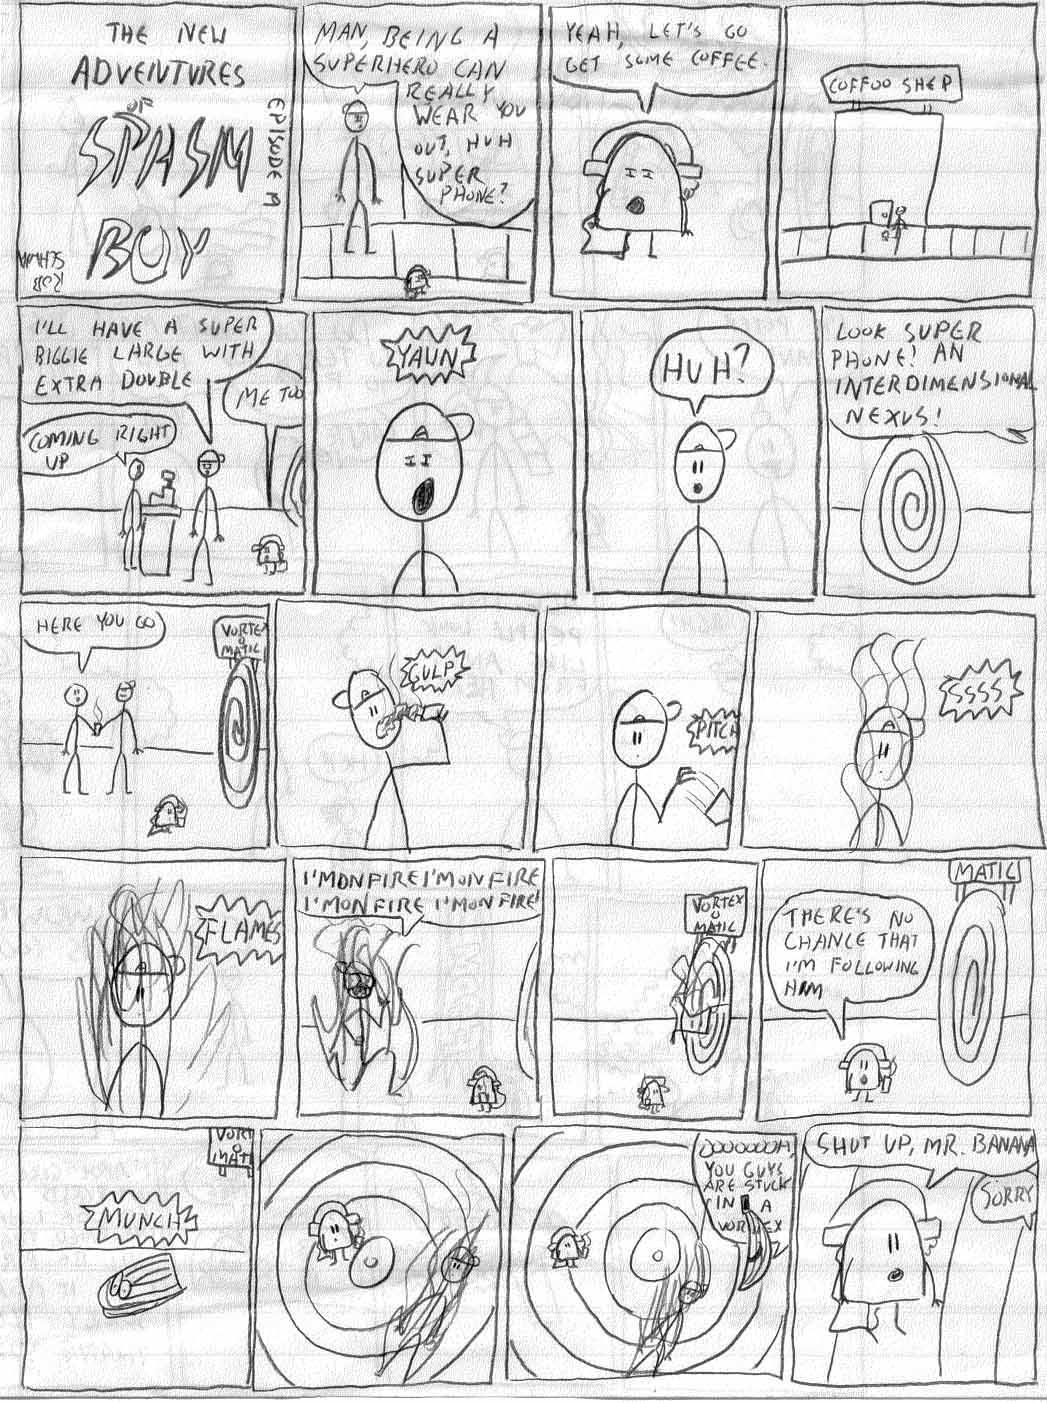 THE NEW
ADVENTURES
OF
SPASM
BOY
EPISODE M
ROB
SCHWA
MAN, BEING A
SUPERHERO CAN
REALLY
WEAR YOU
OUT, HUH
SUPER
PHONE?
YEAH, LET'S GO
GET SOME COFFEE.
COFFOO SHEP
I'LL HAVE A SUPER
BIGGIE LARGE WITH
EXTRA DOUBLE
ME TOO
COMING RIGHT
UP
YAUN
HUH?
LOOK SUPER
PHONE! AN
INTERDIMENSIONAL
NEXUS!
HERE YOU GO
VORTEX
O
MATIC
GULP
PITCH
SSSS
FLAMES
I'MONFIRE I'MONFIRE
I'MONFIRE I'MONFIRE!
VORTEX
O
MATIC
MATIC
THERE'S NO
CHANCE THAT
I'M FOLLOWING
HIM
VORT
O
MATI
MUNCH
OOOOOOOH,
YOU GUYS
ARE STUCK
IN A
VORTEX
SHUT UP, MR. BANANA
SORRY